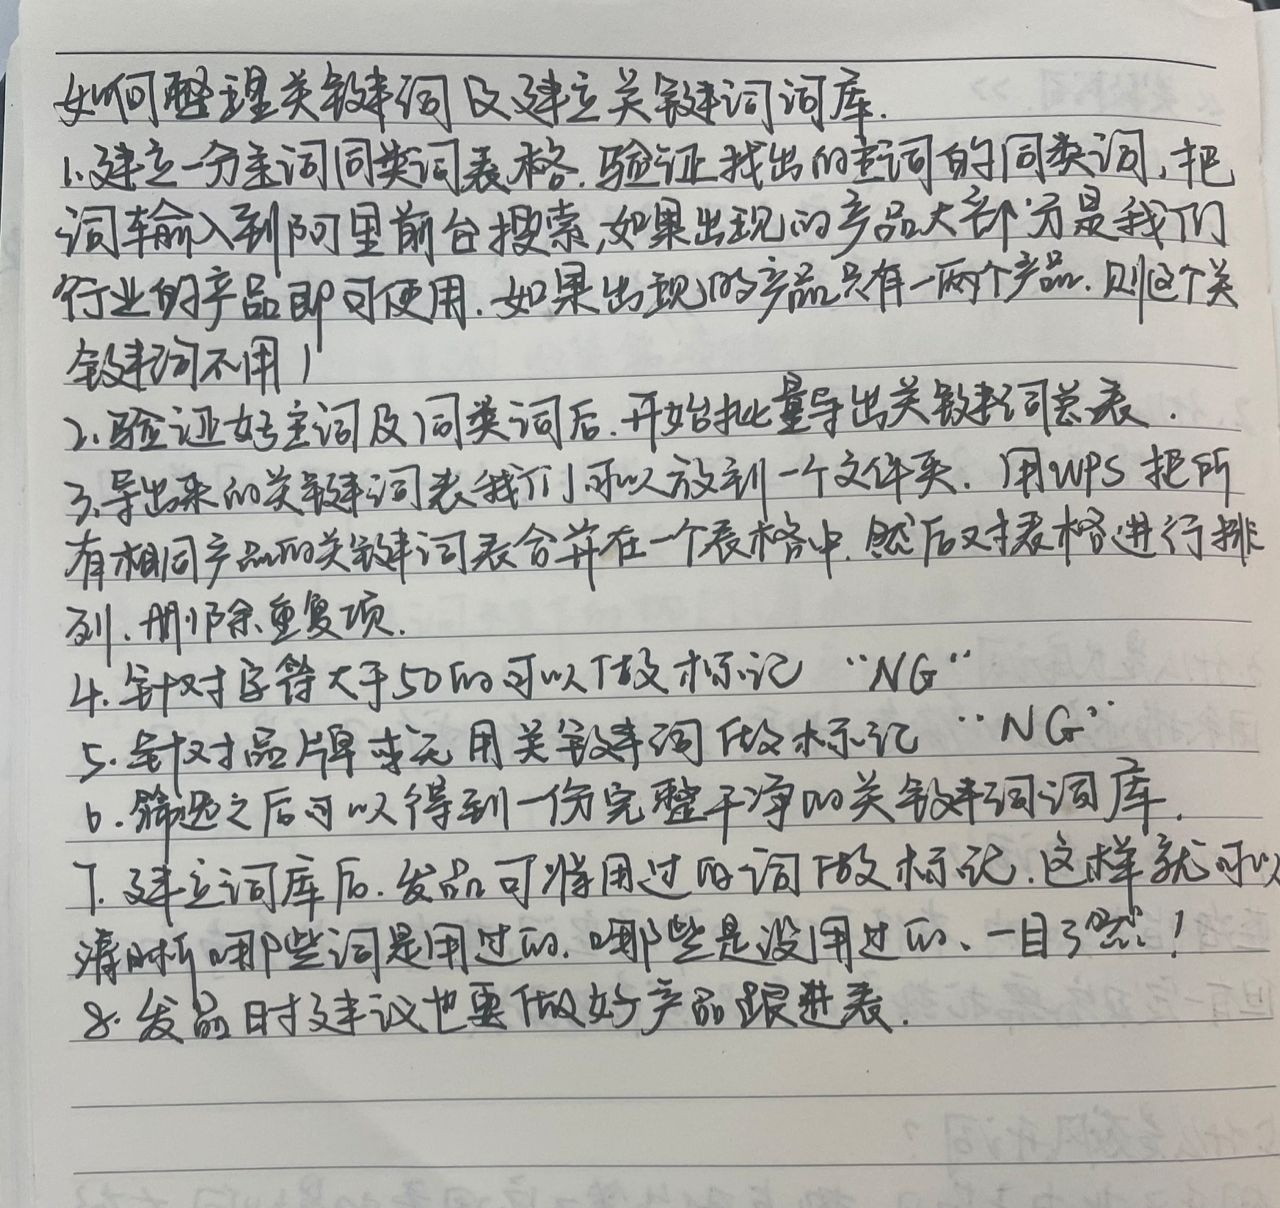 如何整理关键词及建立关键词词库.
1.建立一分主词同类词表格.验证找出的主词的同类词,把
词输入到阿里前台搜索,如果出现的产品大部分是我们
行业的产品即可使用.如果出现的产品只有一两个产品.则这个关
键词不用!
2.验证好主词及同类词后.开始批量导出关键词总表.
3.导出来的关键词表我们可以放到一个文件夹.用WPS把所
有相同产品的关键词表合并在一个表格中.然后对表格进行排
列.删除重复项.
4.针对字符大于50的可以做标记“NG”
5.针对品牌或无用关键词做标记“NG”
6.筛选之后可以得到一份完整干净的关键词词库.
7.建立词库后.发品可将用过的词做标记.这样就可以
清晰哪些词是用过的.哪些是没用过的、一目了然!
8.发品时建议也要做好产品跟进表.